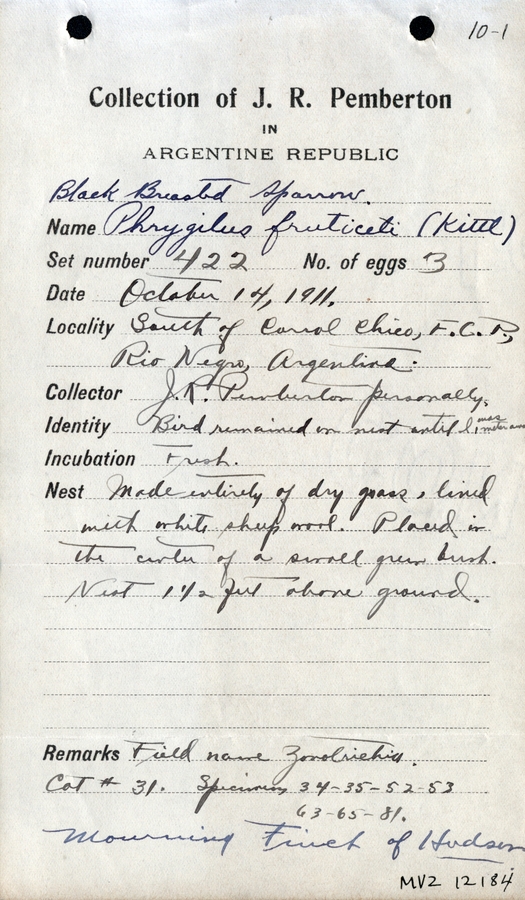 10-1
Collection of J. R. Pemberton
IN
ARGENTINE REPUBLIC
Black Breasted Sparrow.
Name Phrygilus fruticeti (Kittl)
Set number 422 No. of eggs 3
Date October 14, 1911.
Locality South of Corral Chico, F.C.P.,
Rio Negro, Argentina.
Collector J.R. Pemberton personally.
Identity Bird remained on nest until I was
Incubation Fresh.
Nest Made entirely of dry grass, lined
with white sheep wool. Placed in
the center of a small green bush.
Nest 1 1/2 feet above ground.
Remarks Field name Zonotrichia.
Cat # 31. Specimens 34-35-52-53
63-65-81.
Mourning Finch of Hudson
MVZ 12184